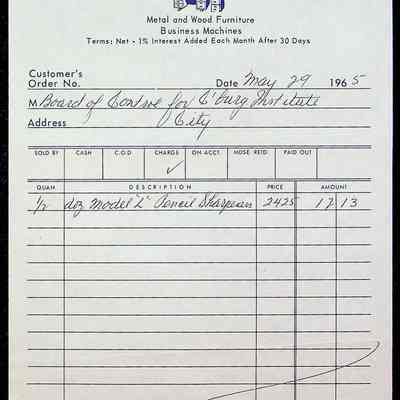 Metal and Wood Furniture
Business Machines
Terms: Net - 1% Interest Added Each Month After 30 Days
Customer's
Order No. Date May 29 1965
M Board of Control for C'burg Institute
Address City
SOLD BY CASH C.O.D CHARGE ON ACCT. MDSE RETD. PAID OUT
✓
QUAN DESCRIPTION PRICE AMOUNT
1/2 doz Model "L" Pencil Sharpeners 2425 12 13